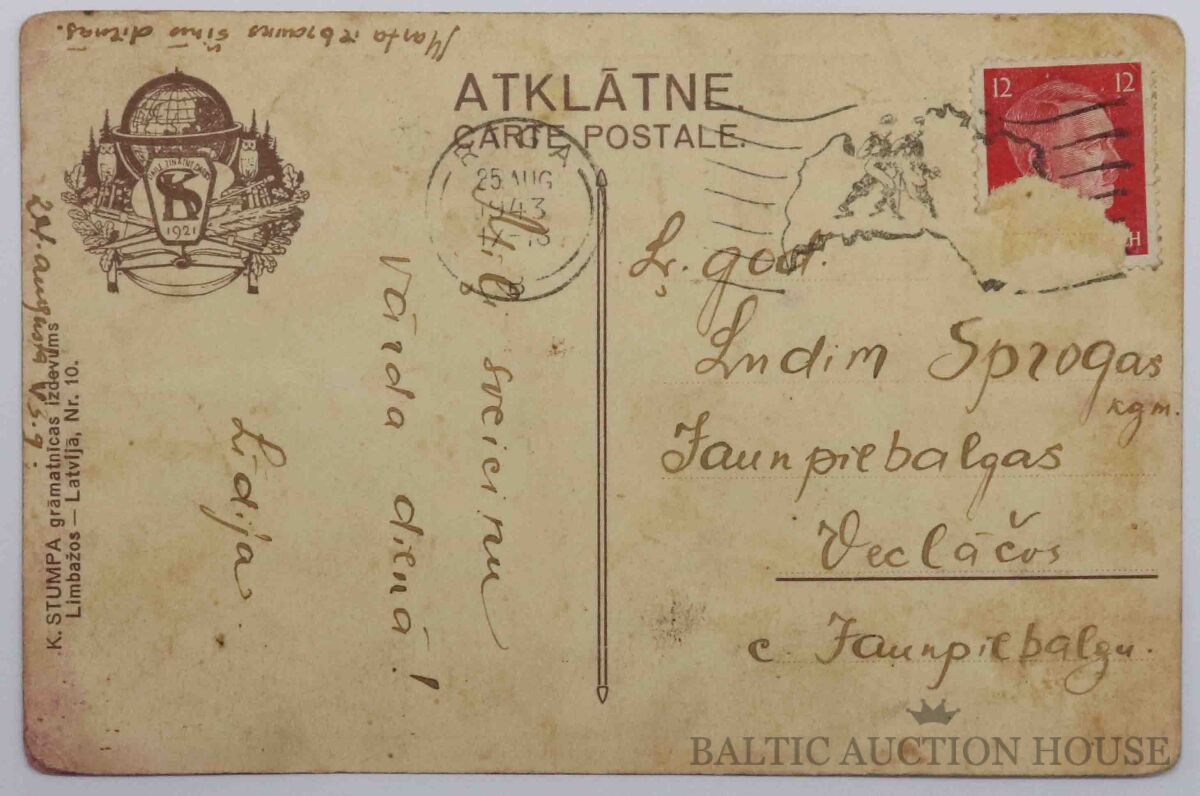 Marta izbrauks šinīs dienās.
ATKLĀTNE.
CARTE POSTALE.
12 12
RIGA
25. AUG
1943
1921
24. augustā 43. g.
K. STUMPA grāmatnīcas izdevums
Limbažos — Latvijā, Nr. 10.
Mīļi sveicinu
Vārda dienā!
Lidija
Ļ. god.
Ludim Sprogas
kgm.
Jaunpiebalgas
Veclāčos
c Jaunpiebalgu.
BALTIC AUCTION HOUSE